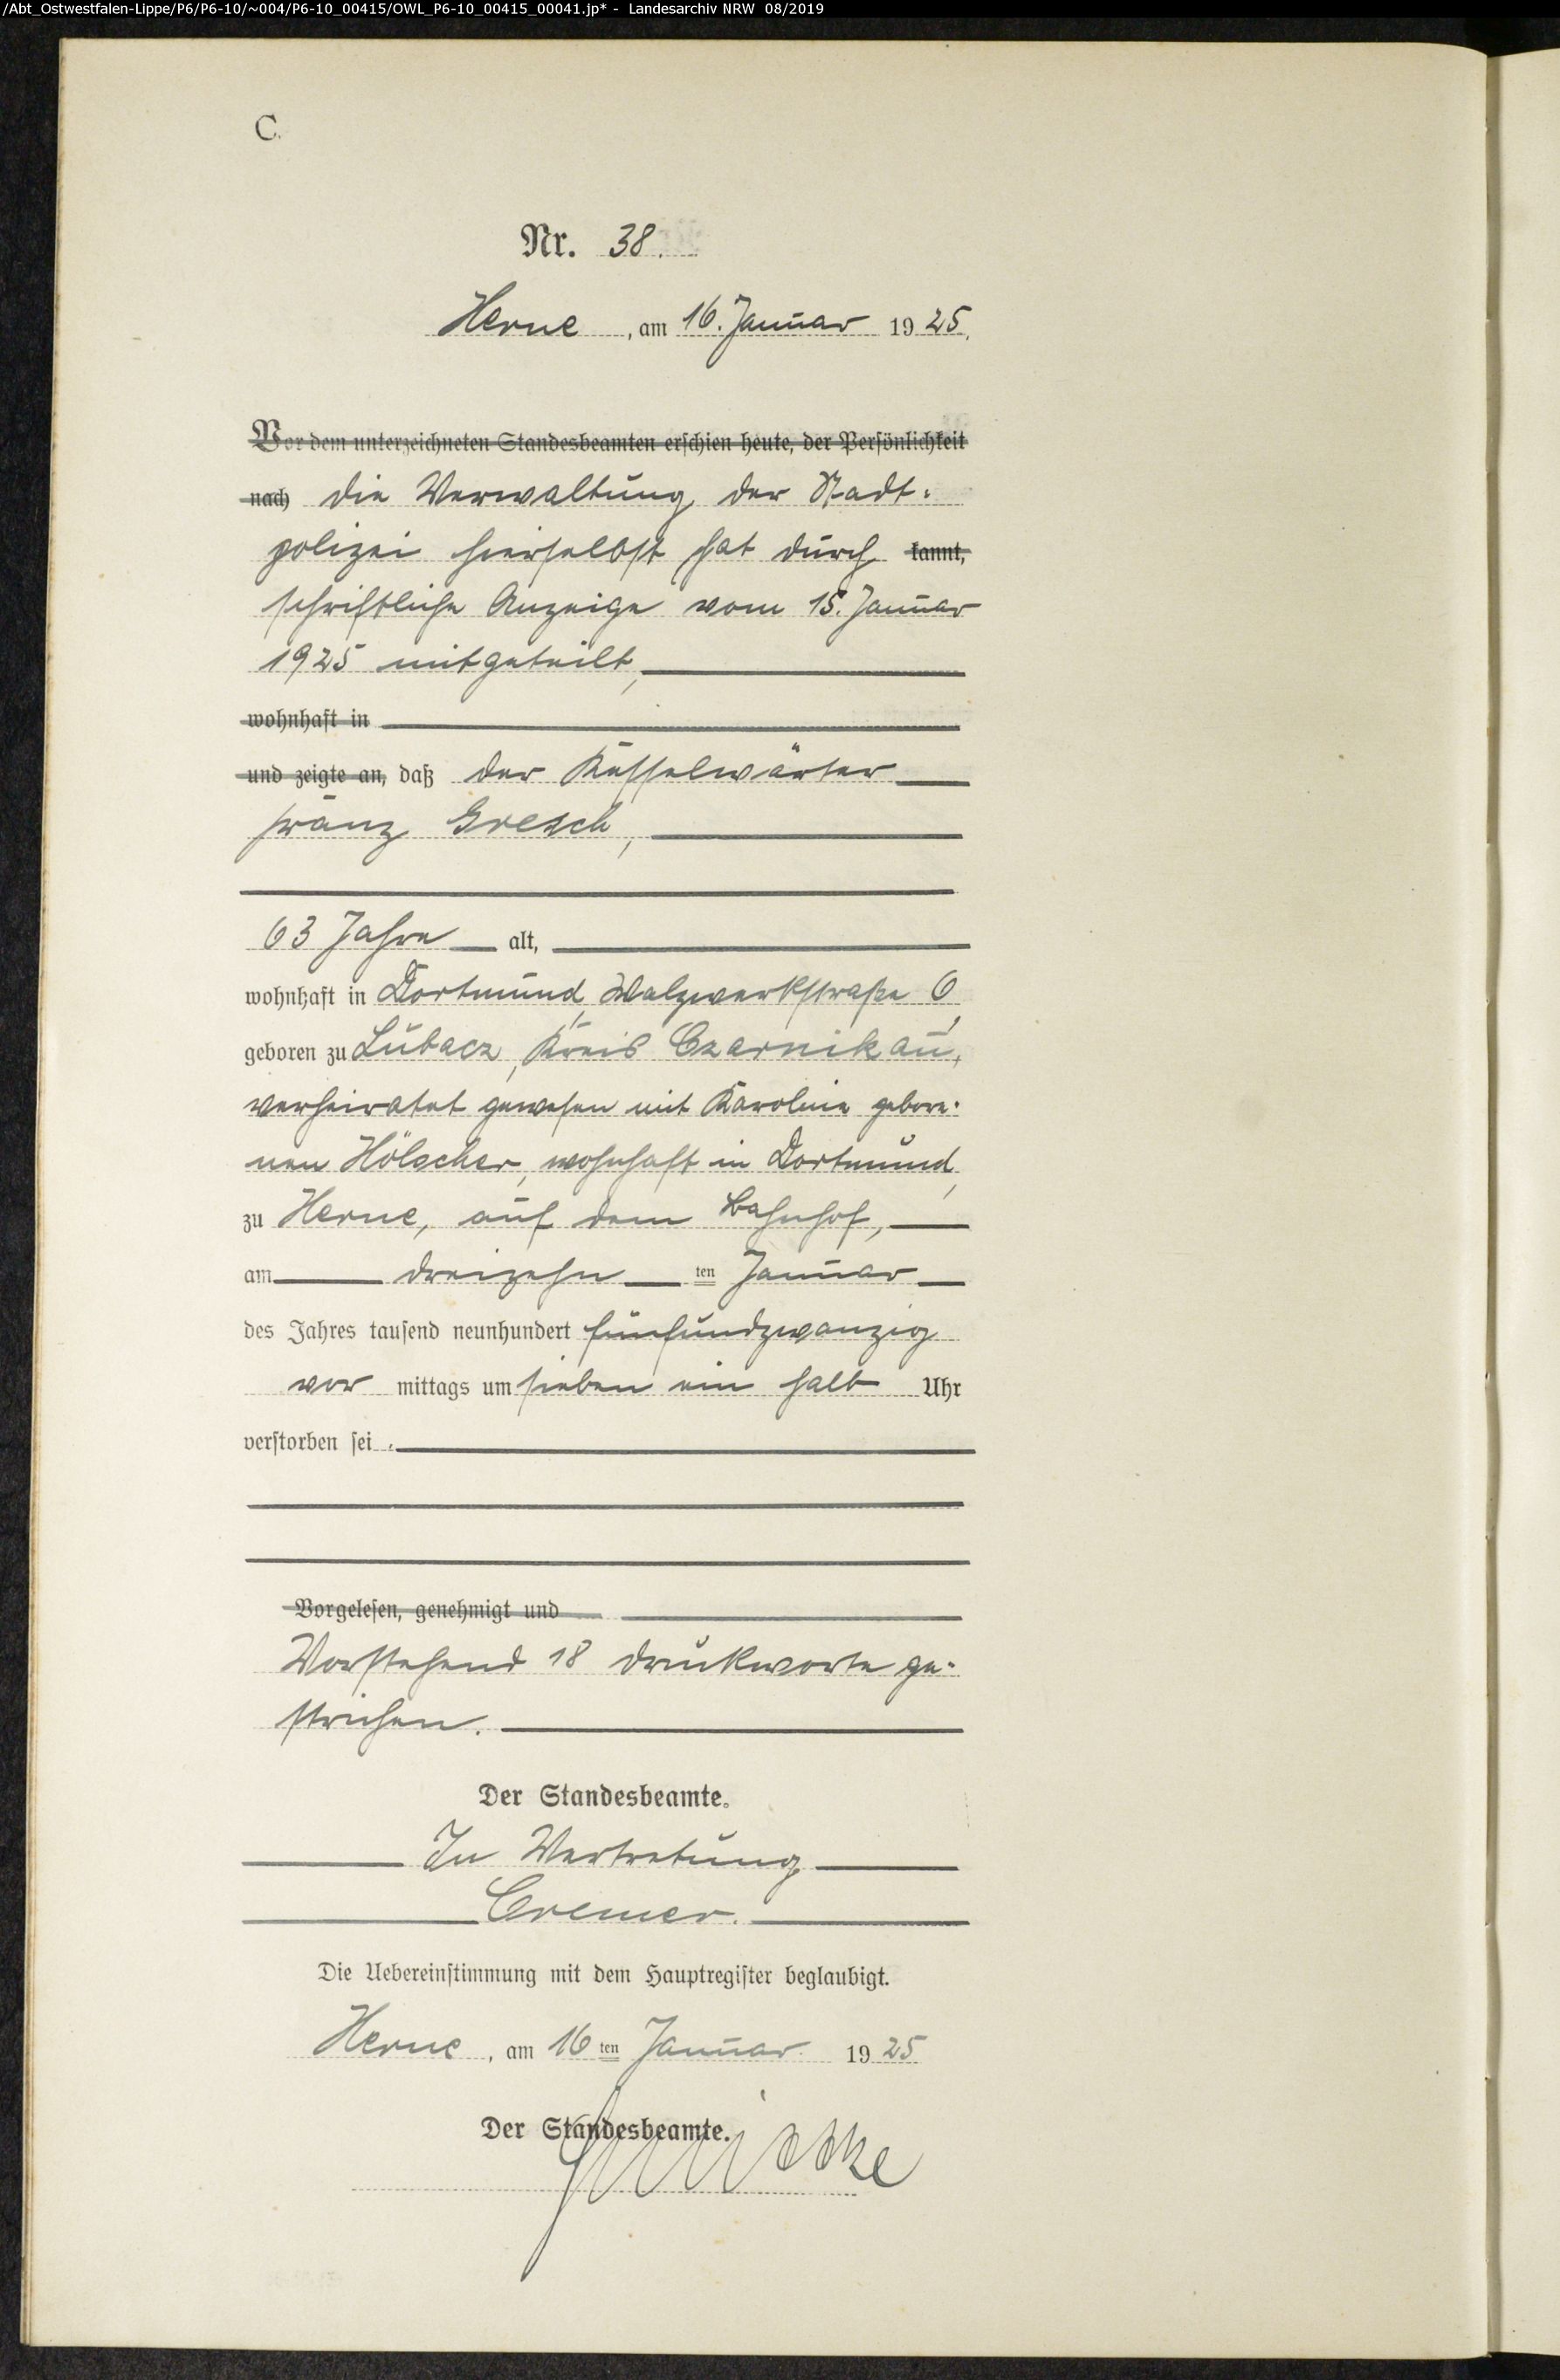 /Abt_Ostwestfalen-Lippe/P6/P6-10/~004/P6-10_00415/OWL_P6-10_00415_00041.jp* - Landesarchiv NRW 08/2019
C.
Nr. 38.
Herne, am 16. Januar 1925.
Vor dem unterzeichneten Standesbeamten erschien heute, der Persönlichkeit
nach die Verwaltung der Stadt-
polizei hierselbst hat durch kannt,
schriftliche Anzeige vom 15. Januar
1925 mitgeteilt,
wohnhaft in
und zeigte an, daß der Kesselwärter
Franz Gresch,
63 Jahre alt,
wohnhaft in Dortmund, Walzwerkstraße 6,
geboren zu Lubacz, Kreis Czarnikau,
verheiratet gewesen mit Karoline gebore-
nen Hölscher, wohnhaft in Dortmund,
zu Herne, auf dem Bahnhof,
am dreizehn ten Januar
des Jahres tausend neunhundert fünfundzwanzig
vor mittags um sieben ein halb Uhr
verstorben sei.
Vorgelesen, genehmigt und
Vorstehend 18 Druckworte ge-
strichen.
Der Standesbeamte.
In Vertretung
Cremer.
Die Uebereinstimmung mit dem Hauptregister beglaubigt.
Herne, am 16ten Januar 1925
Der Standesbeamte.